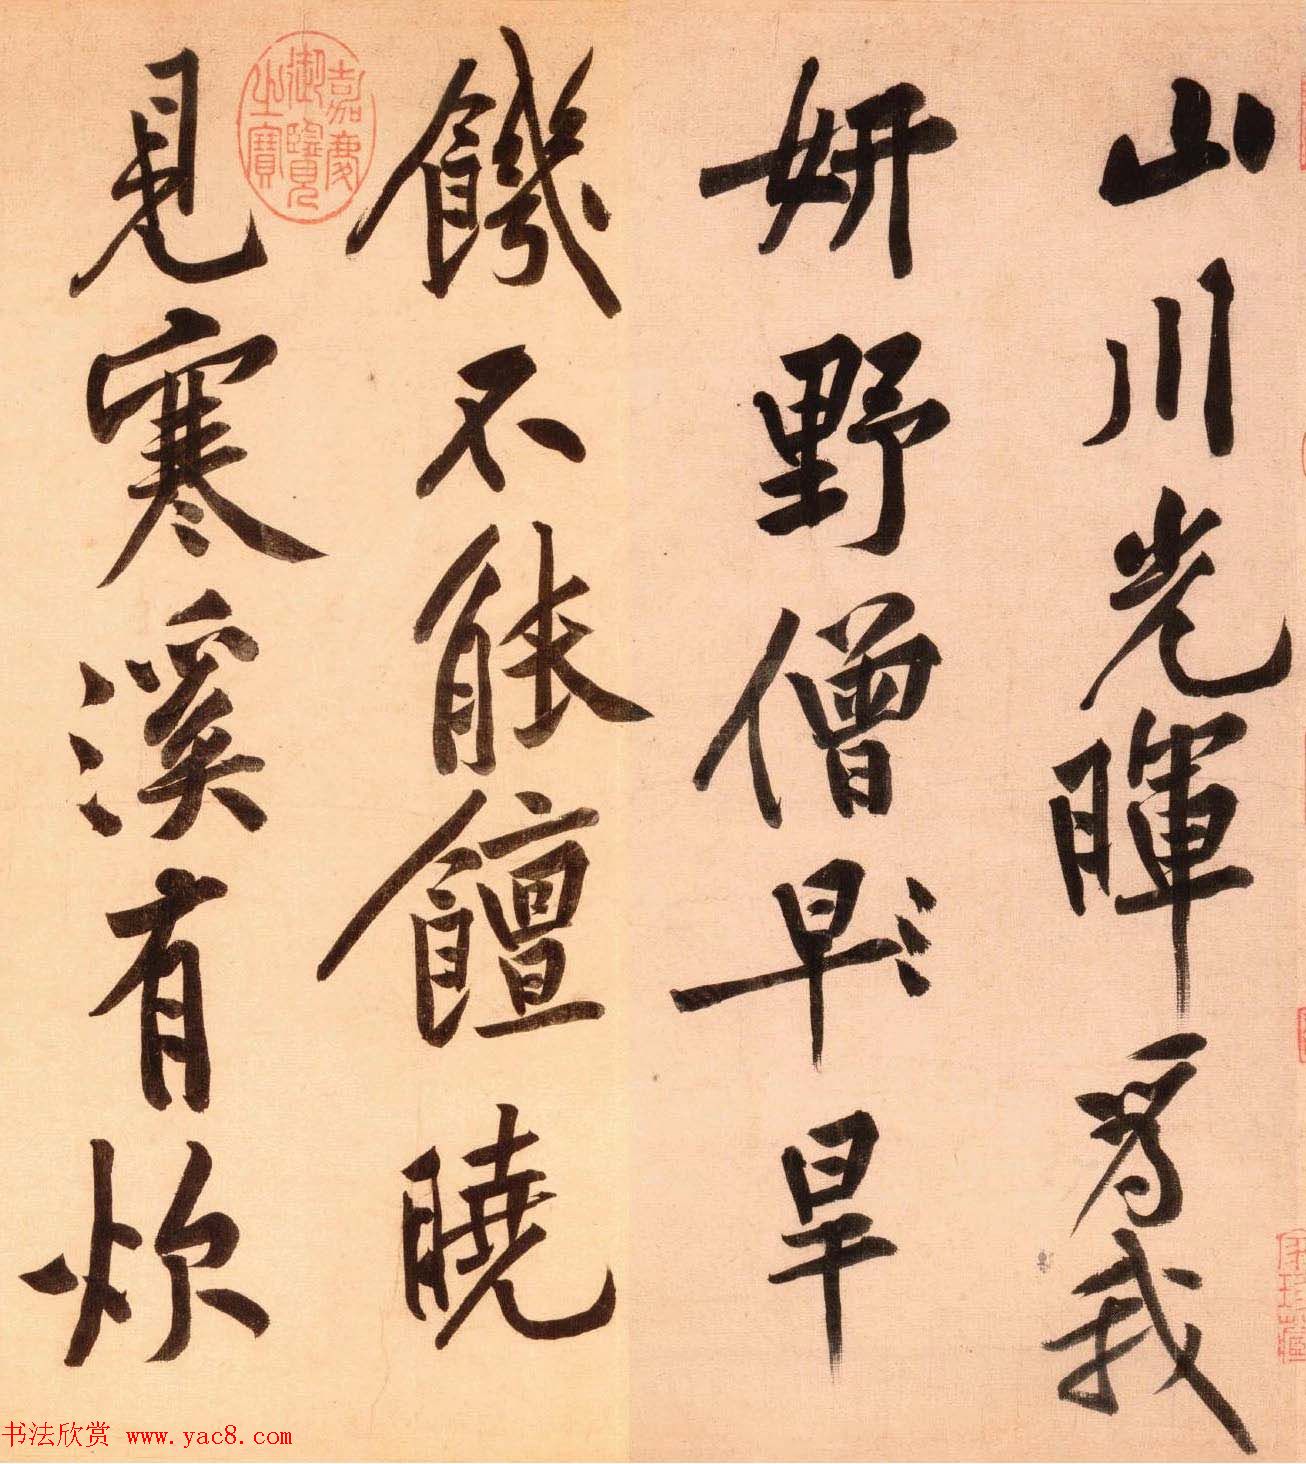 山川光暉為我
妍野僧早旱
饑不能饘曉
見寒溪有炊
嘉慶
御覽
之寶
书法欣赏 www.yac8.com